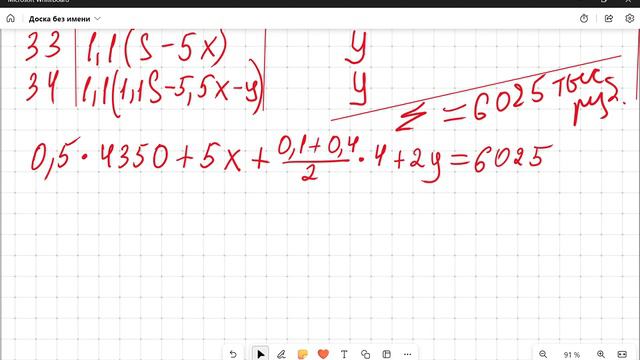 Microsoft Whiteboard
Доска без имени
33 | 1,1(S-5x) | y
34 | 1,1(1,1S-5,5x-y) | y
Σ = 6025 тыс. руб.
0,5 · 4350 + 5x + (0,1+0,4)/2 · 4 + 2y = 6025
91 %